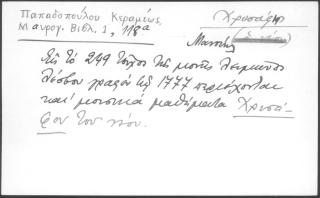 Παπαδοπούλου Κεραμέως
Μαυρογ. Βιβλ. 1, 118α
Χρυσάφη
Μανουὴλ (ὁ νέος)
Εἰς τὸ 299 τεῦχος τῆς μονῆς Λειμῶνος
Λέσβου γραφὲν τῷ 1777 περιέχονται
καὶ μουσικὰ μαθήματα Χρυσά-
φου τοῦ νέου.